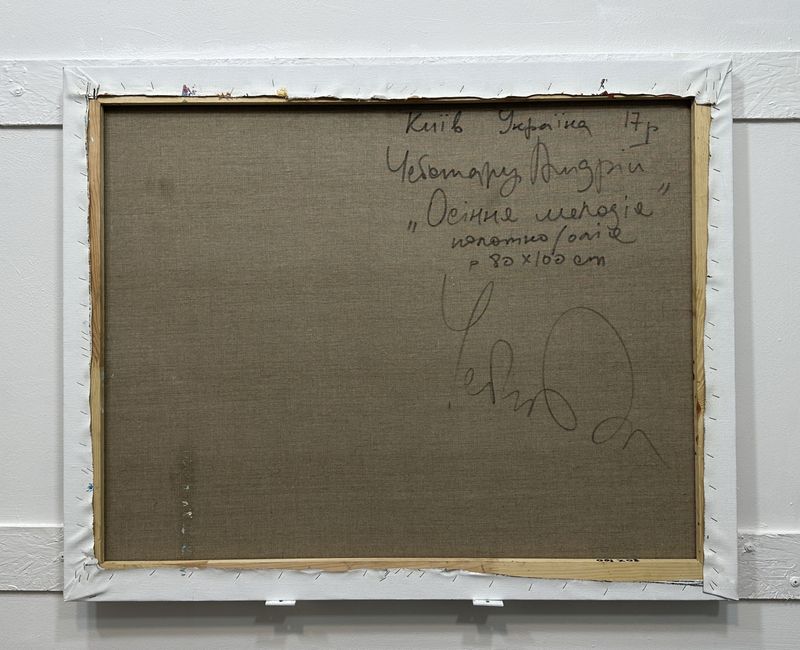 Київ Україна 17р
Чеботару Андрій
„Осіння мелодія”
полотно/олія
80x100 cm
80 x 100